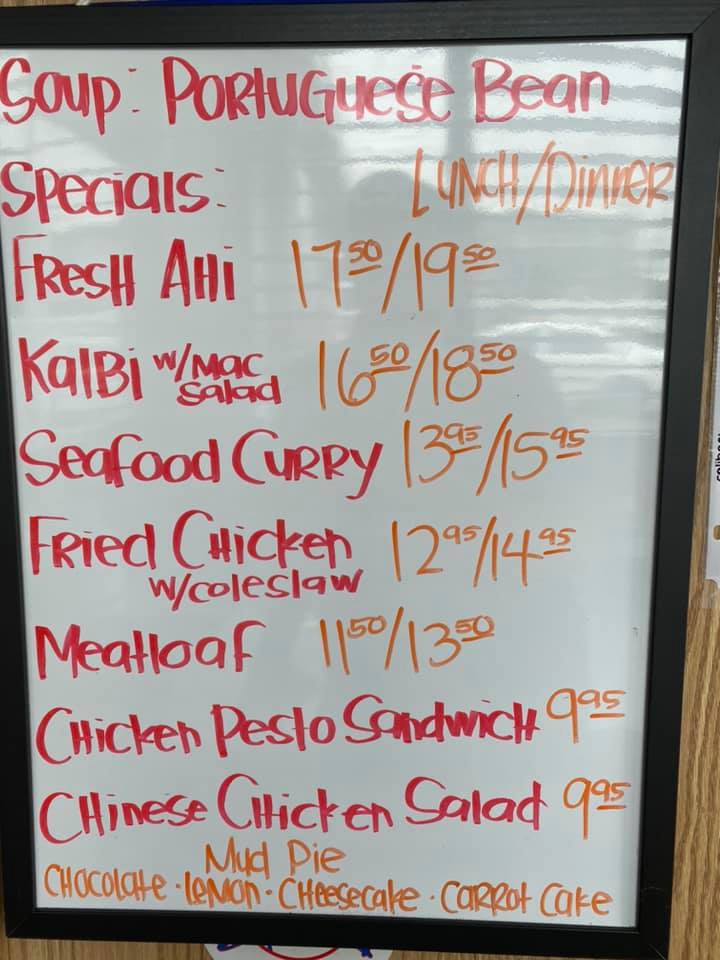 Soup: Portuguese Bean
Specials: Lunch/Dinner
Fresh Ahi 17.50/19.50
Kalbi w/Mac Salad 16.50/18.50
Seafood Curry 13.95/15.95
Fried Chicken 12.95/14.95
w/coleslaw
Meatloaf 11.50/13.50
Chicken Pesto Sandwich 9.95
Chinese Chicken Salad 9.95
Mud Pie
Chocolate · Lemon · Cheesecake · Carrot Cake